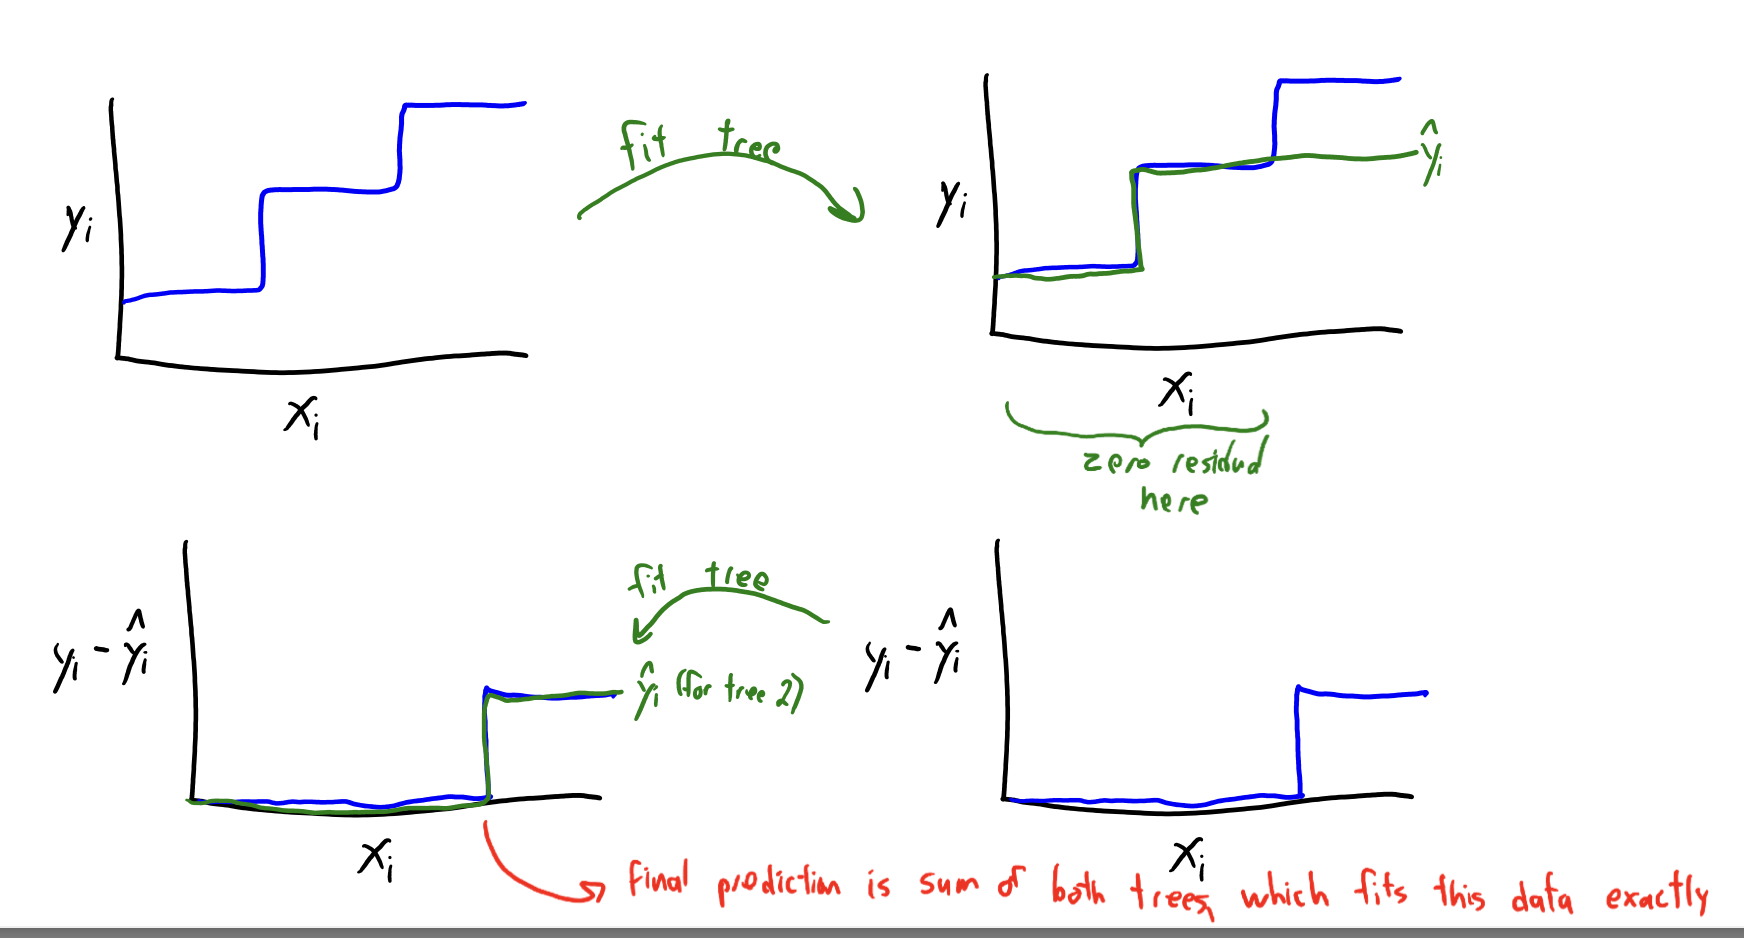 fit tree
yᵢ
xᵢ
yᵢ
ŷᵢ
xᵢ
zero residual
here
yᵢ - ŷᵢ
xᵢ
fit tree
ŷᵢ (for tree 2)
yᵢ - ŷᵢ
xᵢ
final prediction is sum of both trees, which fits this data exactly